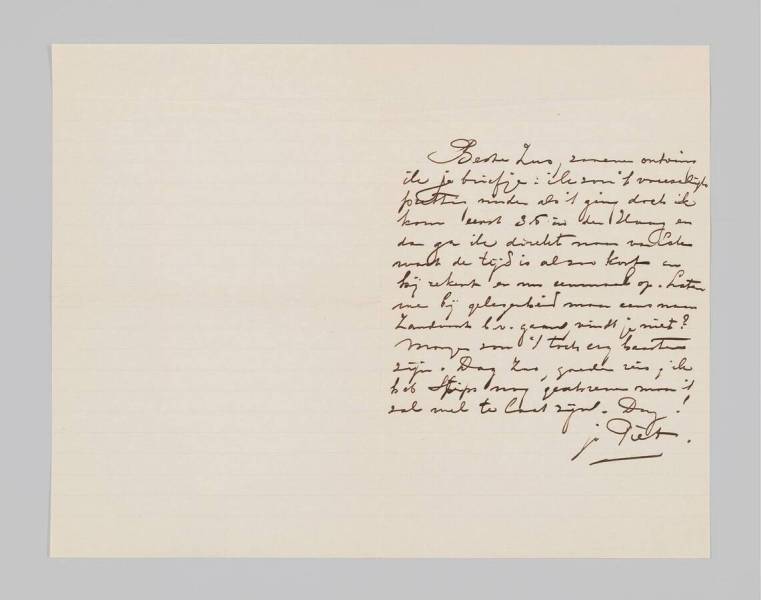 Beste Zus, zooeven ontving
ik je briefje: ik zou 't vreeselijk
prettig vinden als 't ging doch ik
kom eerst 3.5 in den Haag en
dan ga ik direkt naar van
want de tijd is al zoo kort en
hij rekent er nu eenmaal op. Laten
we bij gelegenheid maar eens naar
Zandvoort b.v. gaan, vindt je niet?
Morgen zou 't toch erg haasten
zijn. Dag Zus, goede reis; ik
heb nog geschreven maar 't
zal wel te laat zijn. Dag!
je Piet.